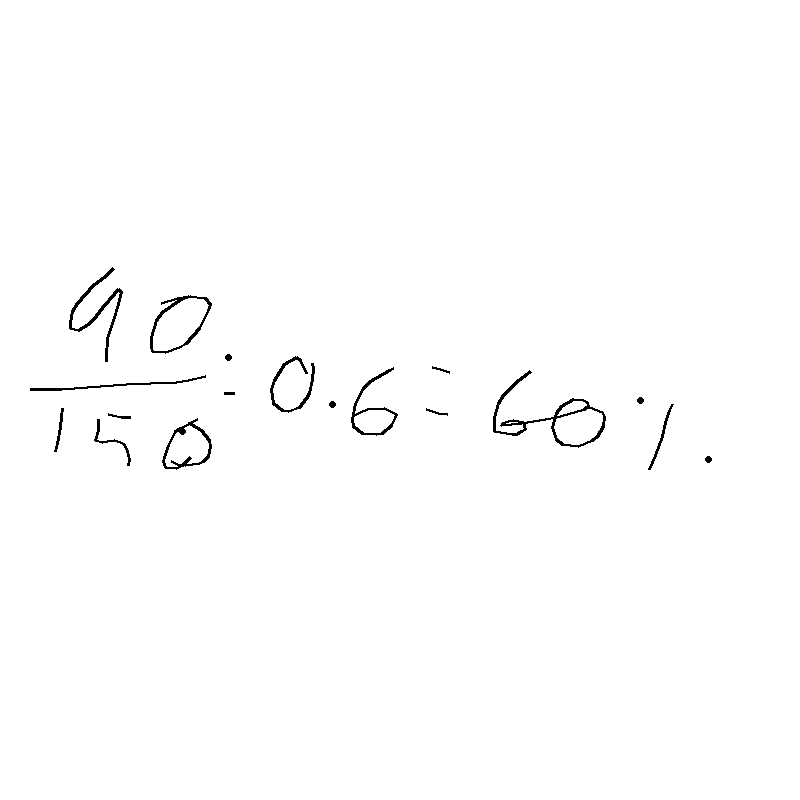 90/150 = 0.6 = 60%